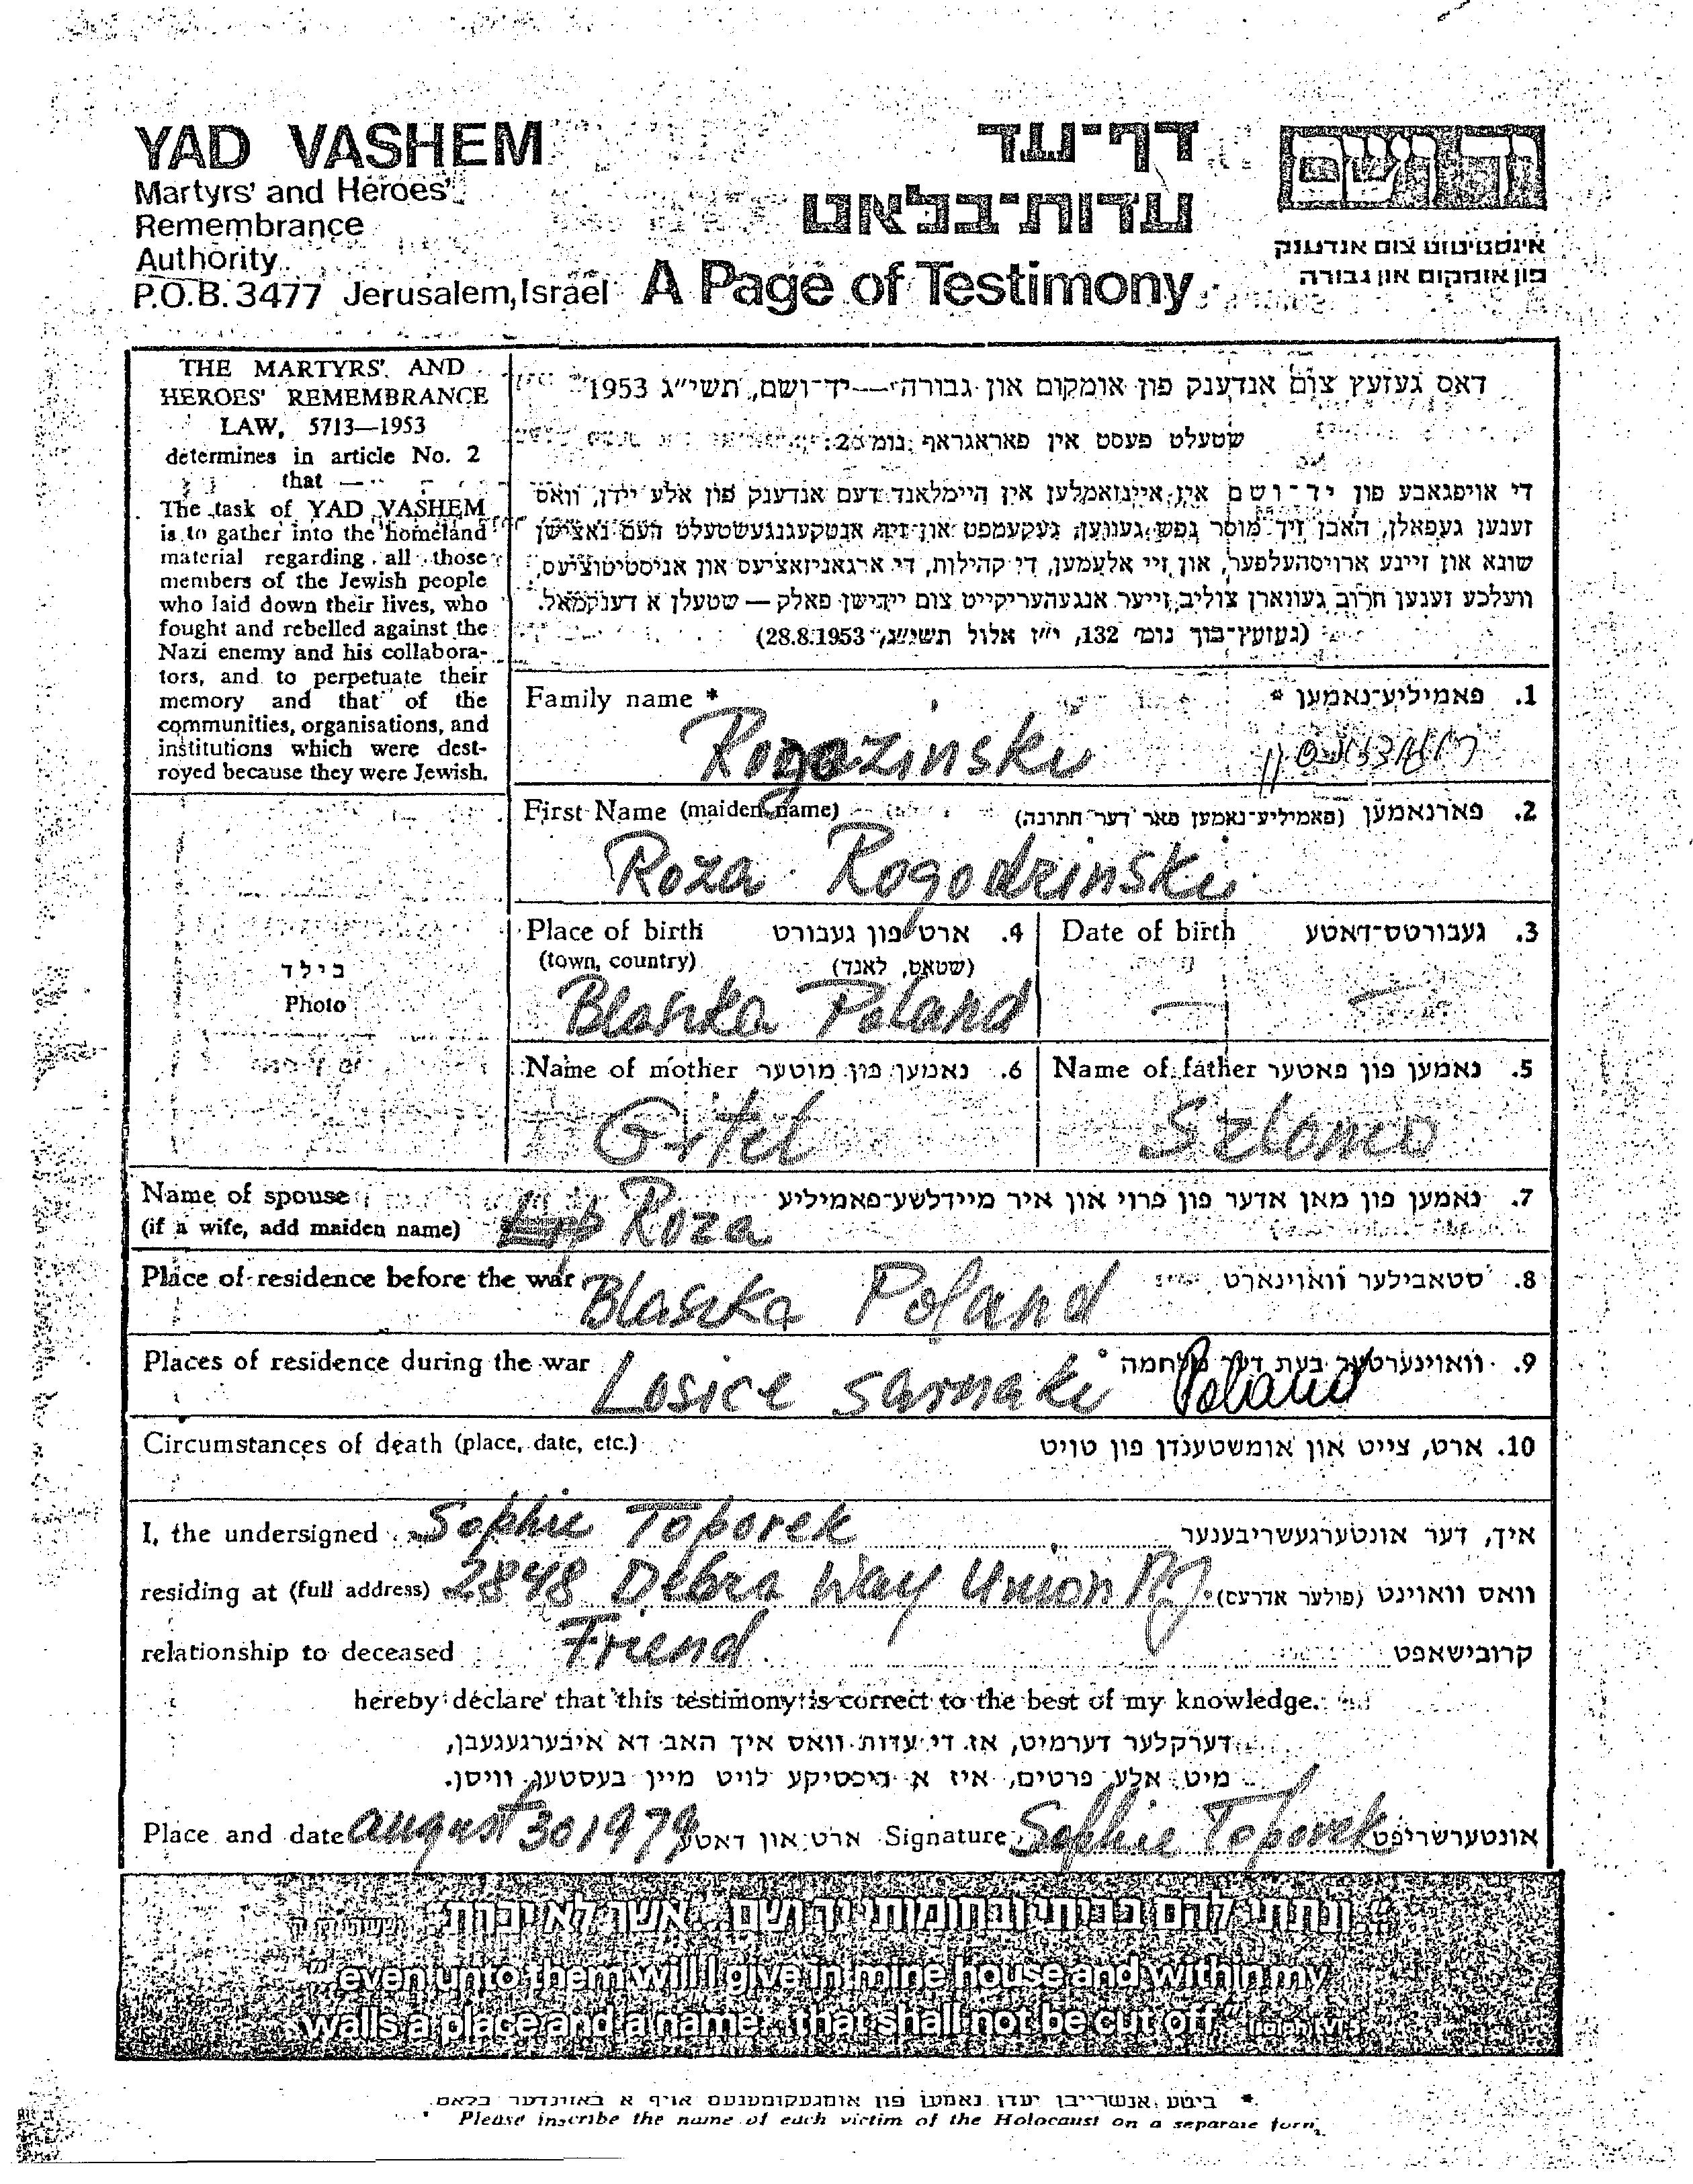 YAD VASHEM
Martyrs' and Heroes'
Remembrance
Authority
P.O.B. 3477 Jerusalem, Israel
דף־עד
עדות־בלאט
A Page of Testimony
יד ושם
אינסטיטוט צום אנדענק
פון אומקום און גבורה
THE MARTYRS' AND
HEROES' REMEMBRANCE
LAW, 5713—1953
determines in article No. 2
that —
The task of YAD VASHEM
is to gather into the homeland
material regarding all those
members of the Jewish people
who laid down their lives, who
fought and rebelled against the
Nazi enemy and his collabora-
tors, and to perpetuate their
memory and that of the
communities, organisations, and
institutions which were dest-
royed because they were Jewish.
דאס געזעץ צום אנדענק פון אומקום און גבורה — יד־ושם, תשי״ג 1953
שטעלט פעסט אין פאראגראף נומ׳ 2:
די אויפגאבע פון יד־ושם איז איינזאמלען אין היימלאנד דעם אנדענק פון אלע יידן, וואס
זענען געפאלן, האבן זיך מוסר נפש געווען, געקעמפט און זיך אנטקעגנגעשטעלט דעם נאצישן
שונא און זיינע ארויסהעלפער, און זיי אלעמען, די קהילות, די ארגאניזאציעס און אינסטיטוציעס,
וועלכע זענען חרוב געווארן צוליב זייער אנגעהעריקייט צום יידישן פאלק — שטעלן א דענקמאל.
(געזעץ־בוך נומ׳ 132, י״ז אלול תשי״ג, 28.8.1953)
Family name * פאמיליע־נאמען * .1
Rogozinski
First Name (maiden name) פארנאמען (פאמיליע־נאמען פאר דער חתונה) .2
Roza Rogodzinski
Place of birth ארט פון געבורט .4
(town, country) (שטאט, לאנד)
Blaszka Poland
Date of birth געבורטס־דאטע .3
— —
Name of mother נאמען פון מוטער .6
Gitel
Name of father נאמען פון פאטער .5
Szlomo
Name of spouse נאמען פון מאן אדער פון פרוי און איר מיידלשע־פאמיליע .7
(if a wife, add maiden name) Roza
Place of residence before the war סטאבילער וואוינארט .8
Blaszka Poland
Places of residence during the war וואוינערטער בעת דער מלחמה .9
Losice Sarnaki Poland
Circumstances of death (place, date, etc.) ארט, צייט און אומשטענדן פון טויט .10
I, the undersigned Sophie Toporek איך, דער אונטערגעשריבענער
residing at (full address) 2848 Debra Way Union NJ וואס וואוינט (פולער אדרעס)
relationship to deceased Friend קרובישאפט
hereby declare that this testimony is correct to the best of my knowledge.
דערקלער דערמיט, אז די עדות וואס איך האב דא איבערגעגעבן,
מיט אלע פרטים, איז א ריכטיקע לויט מיין בעסטען וויסן.
Place and date August 30 1979 ארט און דאטע Signature Sophie Toporek אונטערשריפט
"...ונתתי להם בביתי ובחומותי יד ושם... אשר לא יכרת"
"...even unto them will I give in mine house and within my
walls a place and a name... that shall not be cut off"
* ביטע אנשרייבן יעדן נאמען פון אומגעקומענעם אויף א באזונדער בלאט.
* Please inscribe the name of each victim of the Holocaust on a separate form.